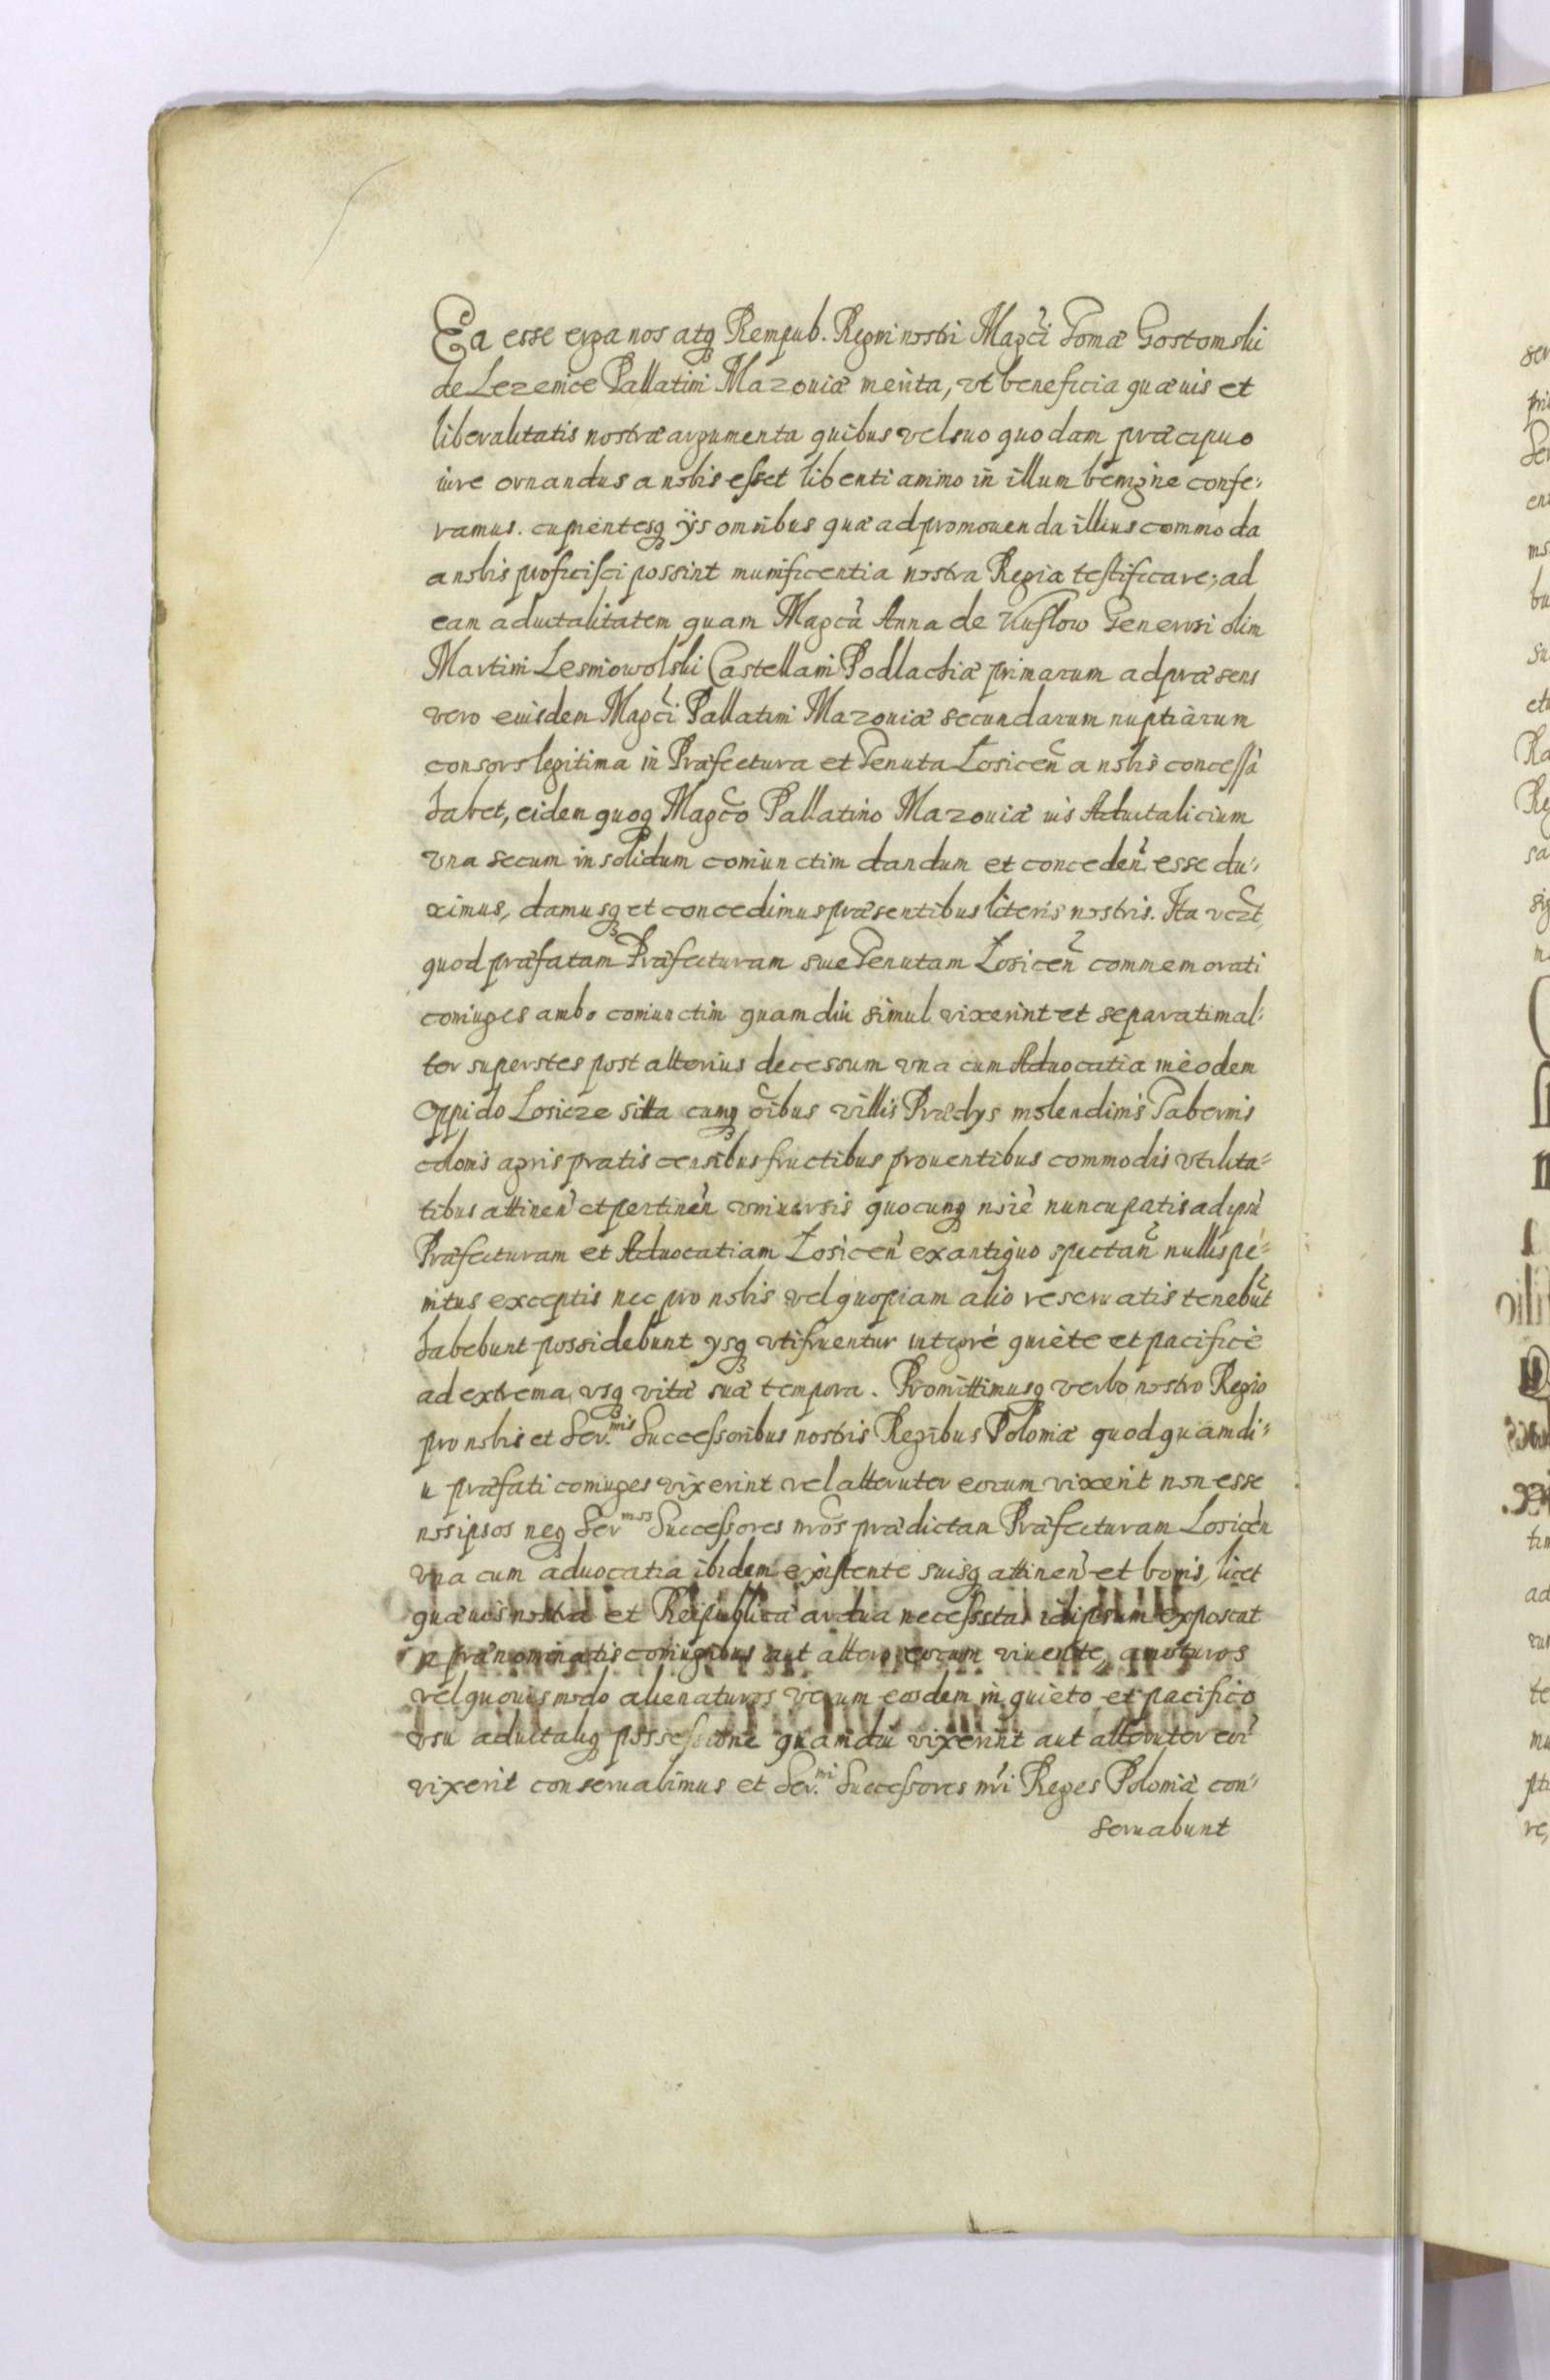 Ea esse erga nos atq3 Rempub. Regni nostri Magci Tomæ Gostomski
de Lezenice Pallatini Mazouiæ merita, vt beneficia quæuis et
liberalitatis nostræ argumenta quibus vel suo quodam præcipuo
iure ornandus a nobis esset libenti animo in illum benigne confe:
ramus. cupientesq3 ijs omnibus quæ ad promouenda illius commoda
a nobis proficisci possint munificentia nostra Regia testificare; ad
eam aduitalitatem quam Magca Anna de Generosi olim
Martini Lesniowolski Castellani Podlachiæ primarum ad præsens
vero eiusdem Magci Pallatini Mazouiæ secundarum nuptiarum
consors legitima in Præfectura et Tenuta Łosicen a nobis concessa
habet, eidem quoq Magco Pallatino Mazouiæ ius Aduitalicium
vna secum in solidum coniunctim dandum et conceden esse du:
ximus, damusq3 et concedimus præsentibus literis nostris. Ita vczt,
quod præfatam Præfecturam siue Tenutam Łosicen commemorati
coniuges ambo coniunctim quam diu simul vixerint et separatim al:
ter superstes post alterius decessum vna cum Aduocatia in eodem
Oppido Łosicze sitta cumq3 oibus villis Prædys molendinis Tabernis
colonis agris pratis censibus fructibus prouentibus commodis vtilita=
tibus attinen et pertinen vniuersis quocunq noie nuncupatis ad ipsu
Præfecturam et Aduocatiam Łosicen ex antiquo spectan nullis pe=
nitus exceptis nec pro nobis vel quopiam alio reseruatis tenebut
habebunt possidebunt ysq3 vtifruentur integre quiete et pacifice
ad extrema vsq3 vitæ suæ tempora. Promittimusq verbo nostro Regio
pro nobis et Ser.mis Successoribus nostris Regibus Poloniæ quod quamdi=
u præfati coniuges vixerint vel alteruter eorum vixerit non esse
nos ipsos neq Sermos Successores nros prædictam Præfecturam Losicen
vna cum aduocatia ibidem existente suisq attinen et bonis, licet
quæuis nostra et Reipublicæ ardua necessitas idipsum exposcat
a prænominatis coniugibus aut altero eorum viuente, amoturos
vel quouis modo alienaturos verum eosdem in quieto et pacifico
vsu aduitaliq possessione quamdiu vixerint aut alteruter eor
vixerit conseruabimus et Ser.mi Successores nri Reges Poloniæ con=
seruabunt